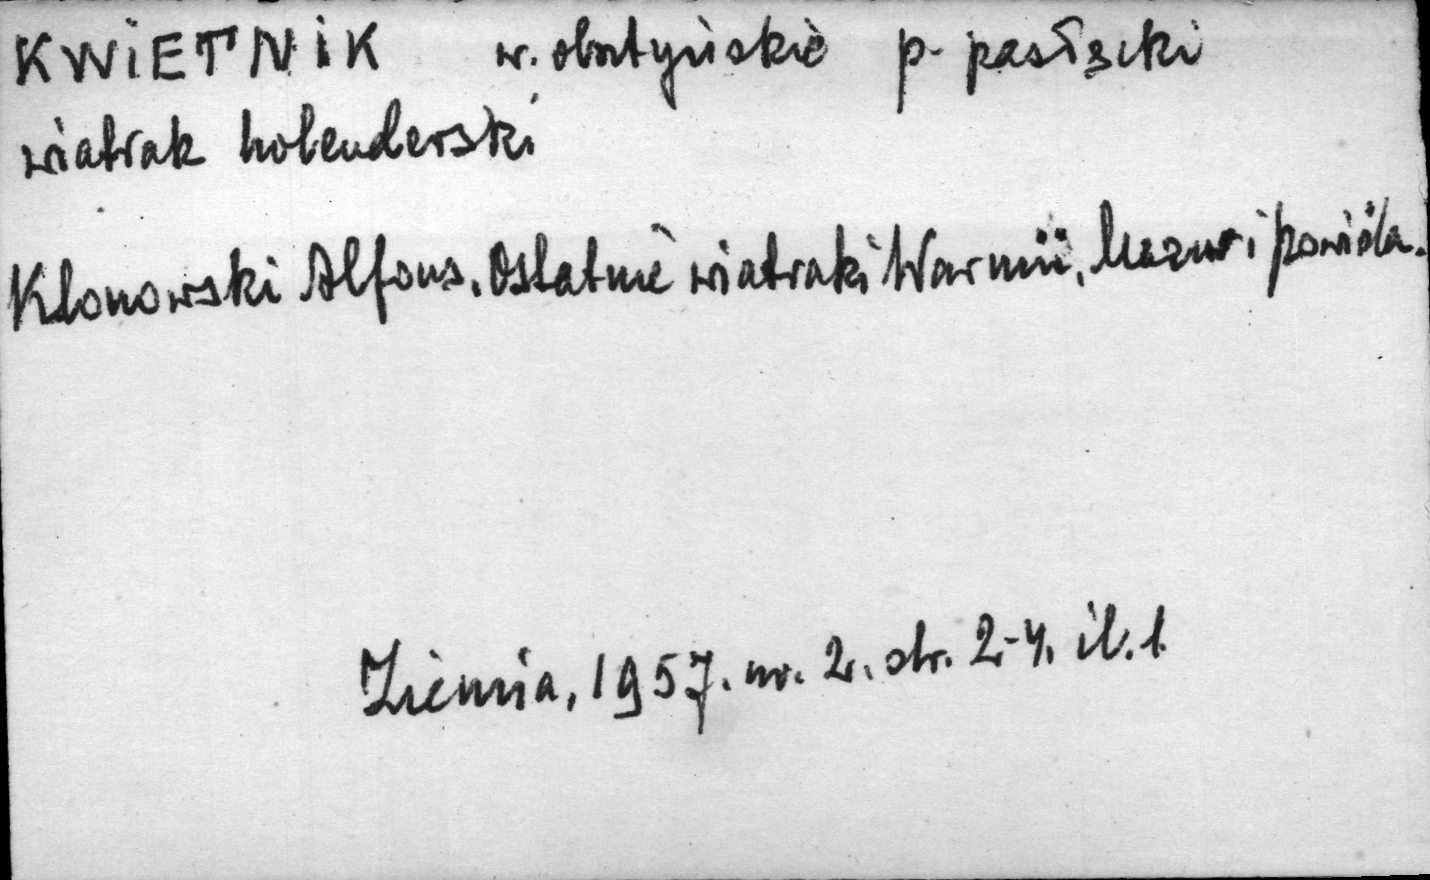 KWIETNIK w. olsztyńskie p. pasłęcki
wiatrak holenderski
Klonowski Alfons. Ostatnie wiatraki Warmii, Mazur i powiśla.
Ziemia, 1957. nr. 2. str. 2-4. il. 1.